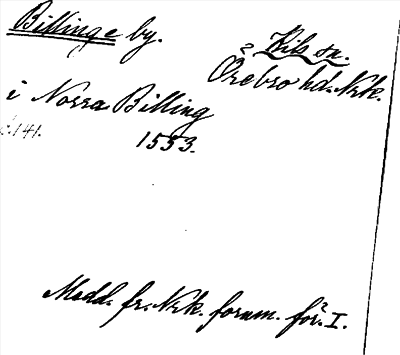 Billinge by.
Kils sn.
Örebro hd. Nrk.
i Norra Billing
s. 141.
1553.
Medd. fr. Nrk. fornm. för. I.